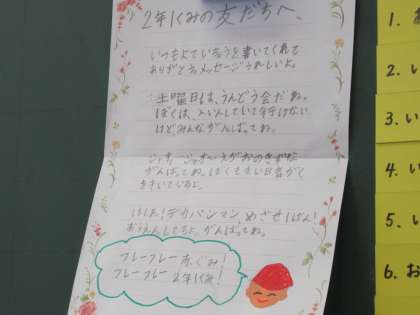 2年1くみの友だちへ、
いつもよていちょうを書いてくれて
ありがとう。メッセージうれしいよ。
土曜日は、うんどう会だね。
ぼくは、入いんしていて行けない
けどみんながんばってね。
がんばってね。ぼくも
をきいているよ。
はしれ!デカパンマン、めざせ1ばん!
おうえんしてるよ。がんばってね。
フレーフレー赤ぐみ!
フレーフレー2年1くみ!
1.
2. い
3. い
4. い
5. い
6. お